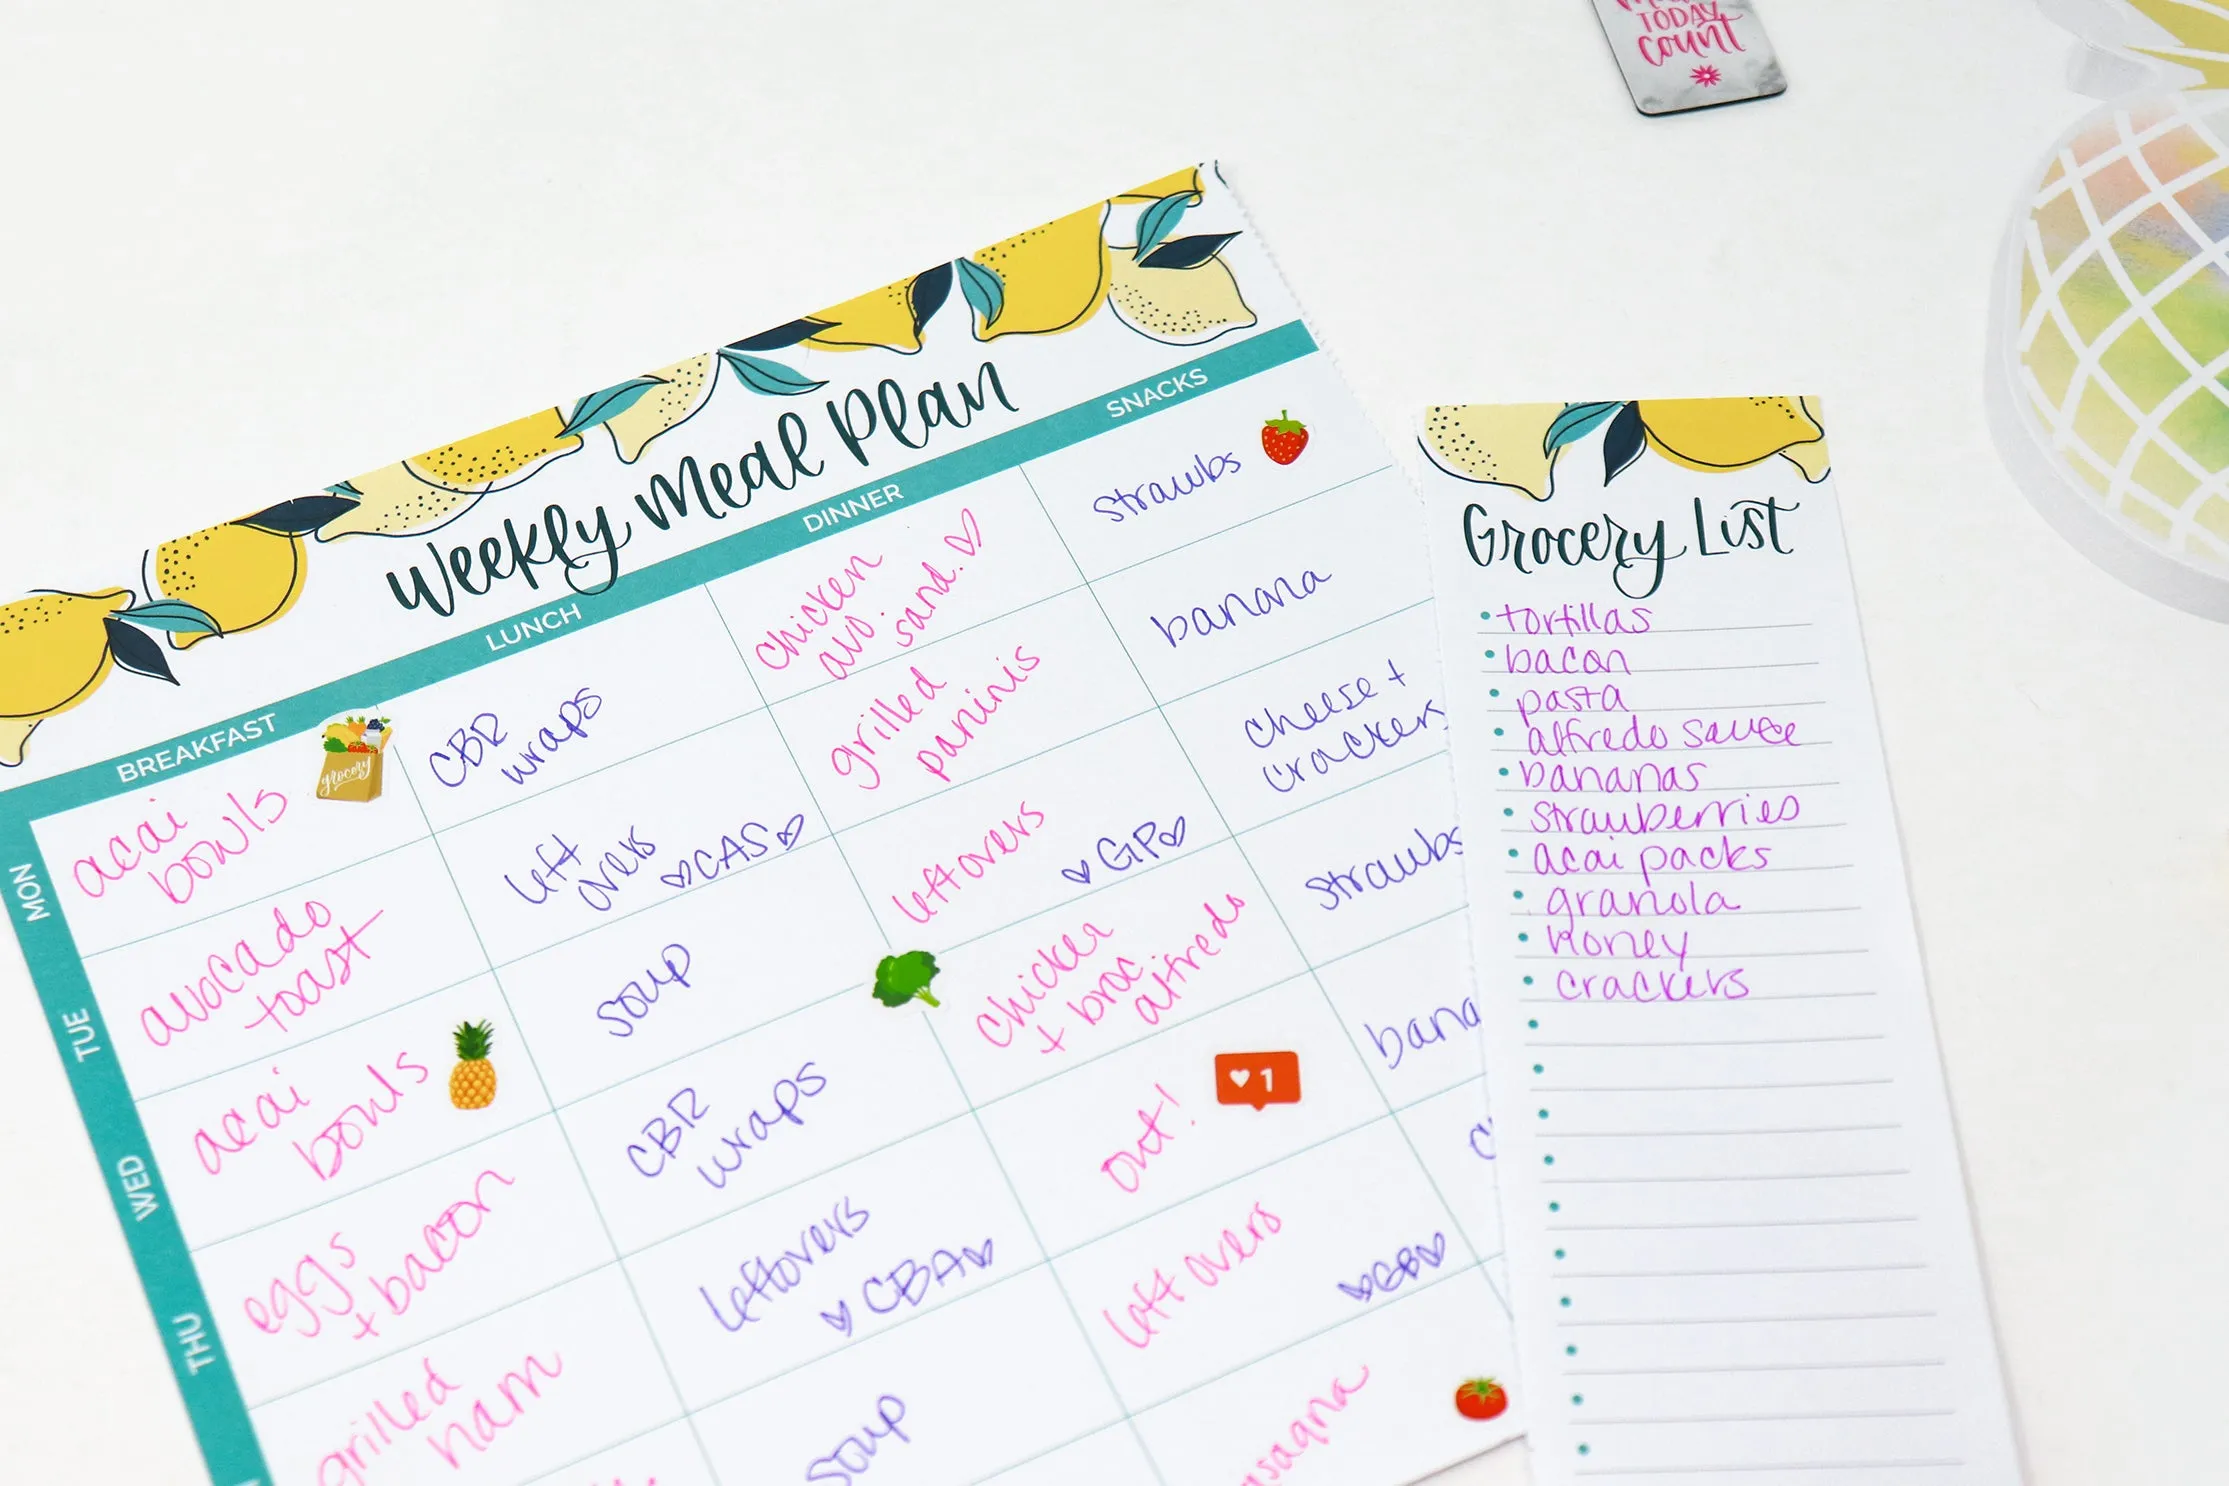 TODAY
count
Weekly Meal Plan
BREAKFAST
LUNCH
DINNER
SNACKS
MON
acai
bowls
grocery
CBR
wraps
chicken
avo
sand.
strawbs
TUE
avocado
toast
left
overs
CAS
grilled
paninis
banana
WED
acai
bowls
soup
leftovers
GP
cheese +
crackers
THU
eggs
+ bacon
CBR
wraps
chicken
+ broc
alfredo
strawbs
grilled
ham
leftovers
CBA
out!
1
bana
soup
left overs
Grocery List
tortillas
bacon
pasta
alfredo sauce
bananas
strawberries
acai packs
granola
honey
crackers